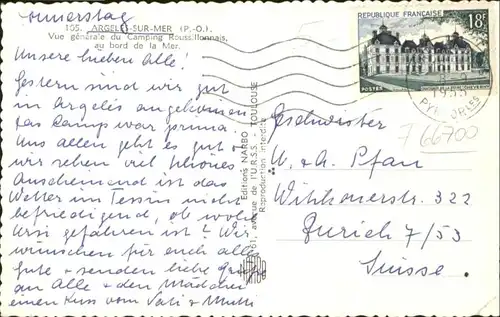 Donnerstag
105. ARGELÈS-SUR-MER (P.-O.).
Vue générale du Camping Roussillonnais,
au bord de la Mer.
Unsere lieben Alle!
Gestern sind wir gut
in Argelès angekommen
das Camp war prima.
Uns allen geht es gut
wir sehen viel Schönes
Anscheinend ist das
Wetter im Tessin nicht
befriedigend, ob wohl
Ursi gefahren ist? Wir
wünschen für euch alle
Gute + senden liebe Grüsse
an Alle + den Mädchen
einen Kuss vom Vati & Mutti
Editions NARBO
61, avenue de l'U.R.S.S. - TOULOUSE
Reproduction interdite
RÉPUBLIQUE FRANÇAISE
18F
POSTES
CHEVERNY
Geschwister
766700
W. & A. Pfan
Witikonerstr. 322
Zurich 7/53
Suisse.